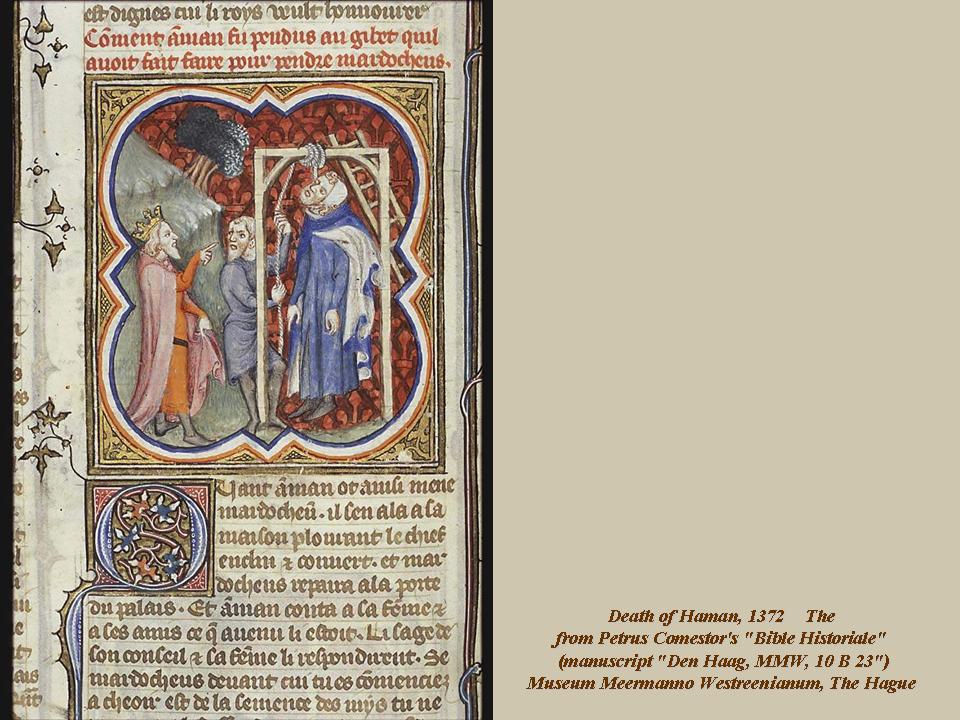 est dignes cui li roys veult honnourer
Cōment āman fu pendus au gibet quil
avoit fait faire pour pendre mardocheus.
Quant āman ot ainsi mene
mardocheū. il sen ala a sa
maison plourant le chief
enclin ⁊ couvert. et mar
docheus repaira a la porte
du palais. Et āman conta a sa fēme ⁊
a ses amis ce q̄ avenu li estoit. Li sage de
son conseil ⁊ sa fēme li respondirent. Se
mardocheus devant cui tu es cōmencie
a cheoir est de la semence des iuys tu ne
Death of Haman, 1372 The
from Petrus Comestor's "Bible Historiale"
(manuscript "Den Haag, MMW, 10 B 23")
Museum Meermanno Westreenianum, The Hague